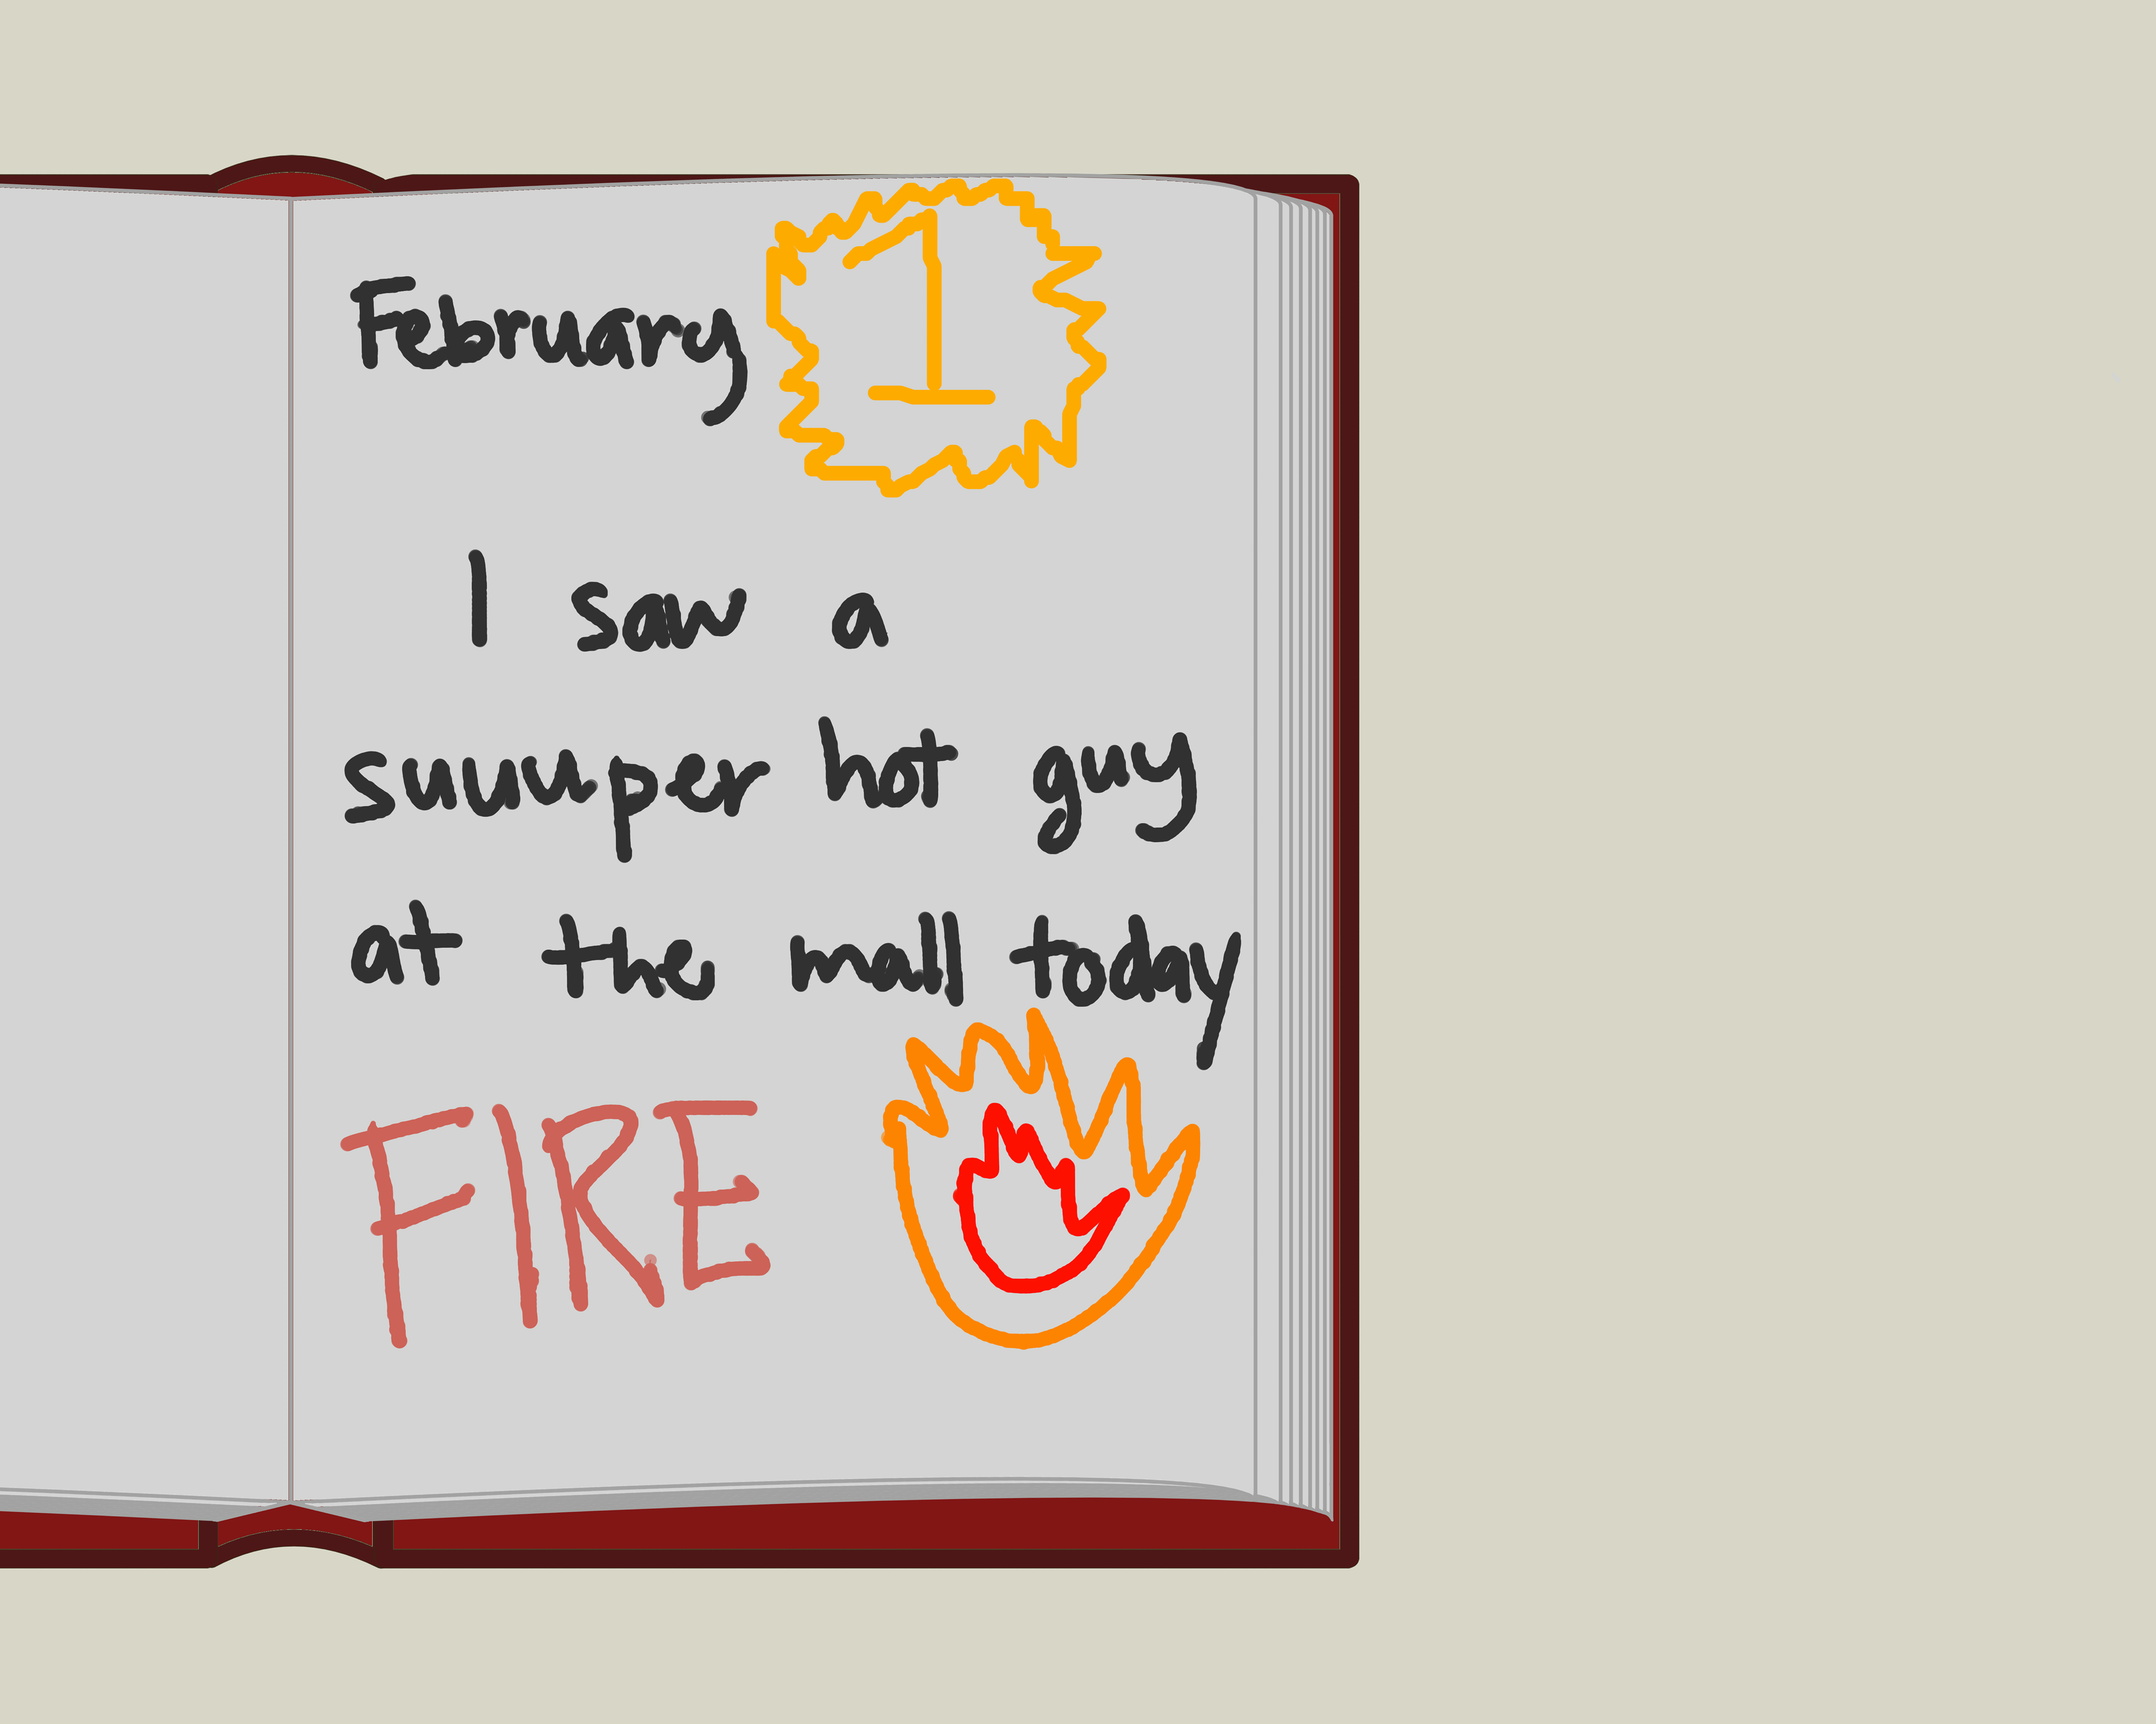 February, 1
I saw a
suuuper hot guy
at the mall today
FIRE